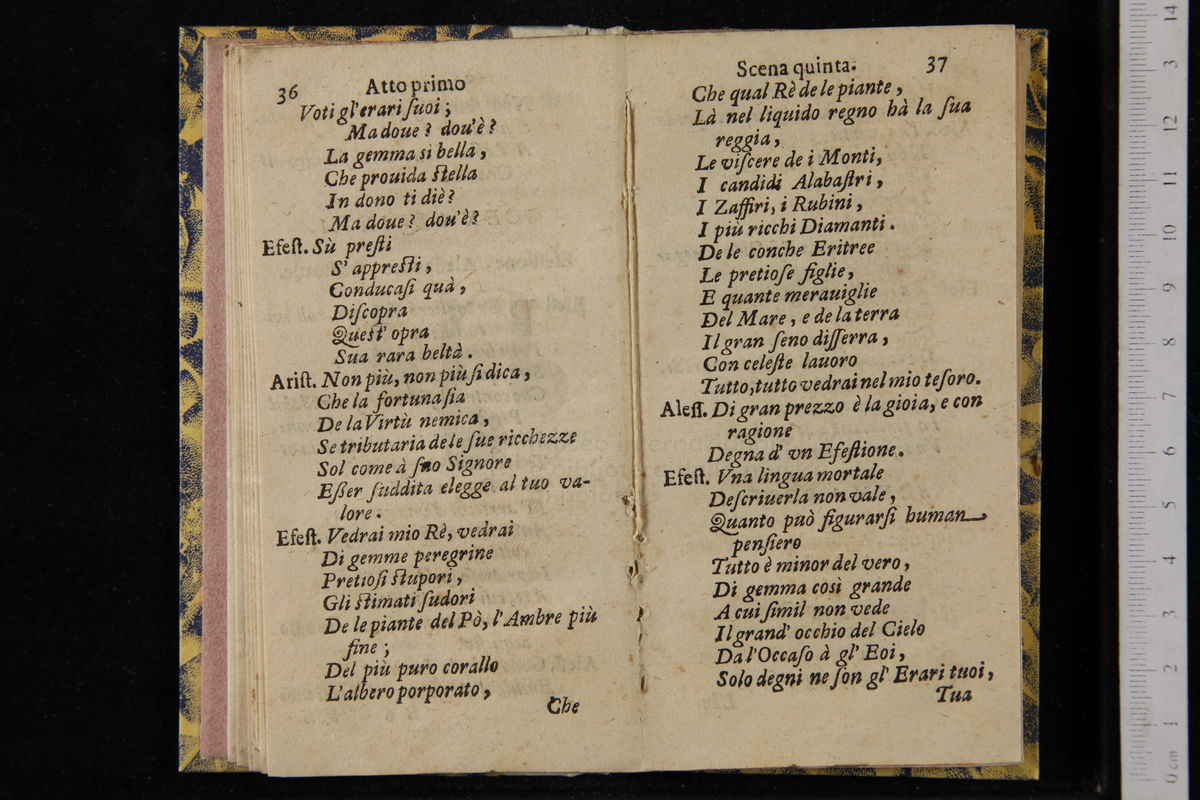 36 Atto primo
Voti gl'erari ſuoi;
Ma doue? dou'è?
La gemma si bella,
Che prouida ſtella
In dono ti diè?
Ma doue? dou'è?
Efeſt. Sù preſti
S' appreſti,
Conducaſi quà,
Diſcopra
Queſt' opra
Sua rara beltà.
Ariſt. Non più, non più ſi dica,
Che la fortuna ſia
De la Virtù nemica,
Se tributaria de le ſue ricchezze
Sol come à ſuo Signore
Eſſer ſuddita elegge al tuo va-
lore.
Efeſt. Vedrai mio Rè, vedrai
Di gemme peregrine
Pretioſi ſtupori,
Gli ſtimati ſudori
De le piante del Pò, l'Ambre più
fine;
Del più puro corallo
L'albero porporato,
Che
Scena quinta. 37
Che qual Rè de le piante,
Là nel liquido regno hà la ſua
reggia,
Le viſcere de i Monti,
I candidi Alabaſtri,
I Zaffiri, i Rubini,
I più ricchi Diamanti.
De le conche Eritree
Le pretioſe figlie,
E quante merauiglie
Del Mare, e de la terra
Il gran ſeno diſſerra,
Con celeſte lauoro
Tutto, tutto vedrai nel mio teſoro.
Aleſſ. Di gran prezzo è la gioia, e con
ragione
Degna d' vn Efeſtione.
Efeſt. Vna lingua mortale
Deſcriuerla non vale,
Quanto può figurarſi human
penſiero
Tutto è minor del vero,
Di gemma così grande
A cui ſimil non vede
Il grand' occhio del Cielo
Da l'Occaſo à gl' Eoi,
Solo degni ne ſon gl' Erari tuoi,
Tua
14
13
12
11
10
9
8
7
6
5
4
3
2
1
0 cm